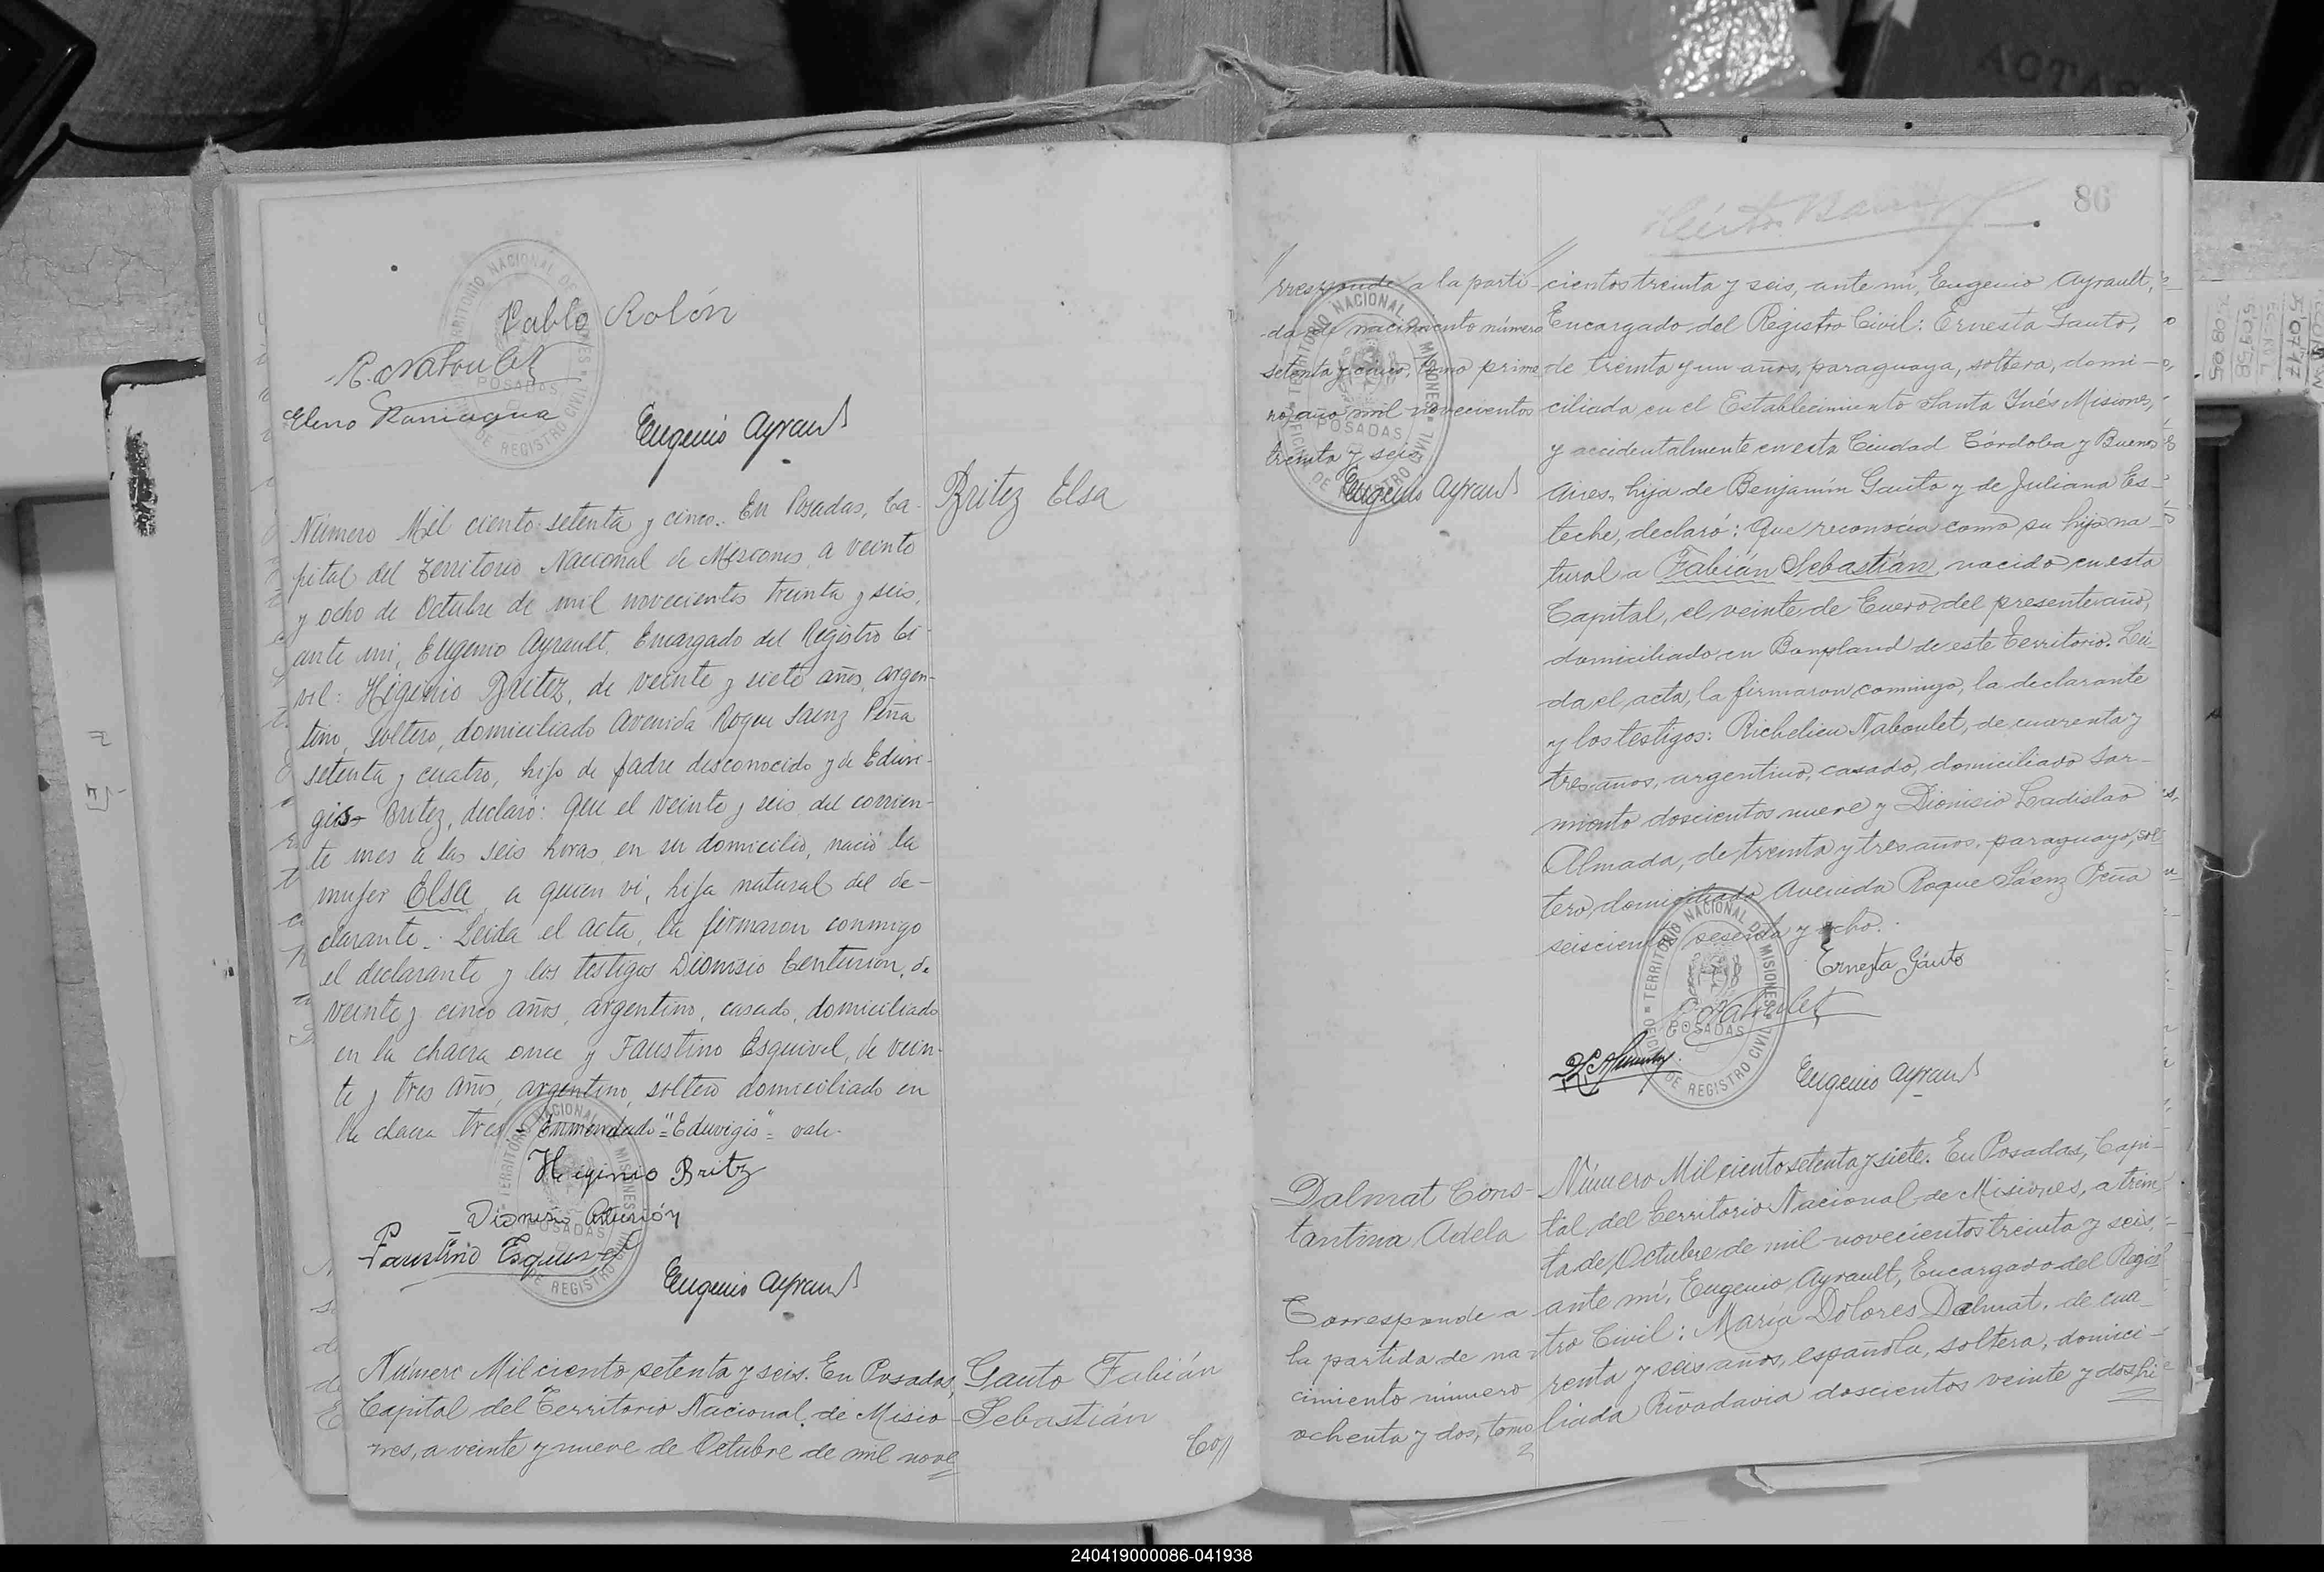 Pablo Rolón
R. Naboulet
Eleno Paniagua
Eugenio Ayrault
Britez Elsa
Número Mil ciento setenta y cinco. En Posadas, Ca-
pital del Territorio Nacional de Misiones, a veinte
y ocho de Octubre de mil novecientos treinta y seis,
ante mi, Eugenio Ayrault, Encargado del Registro Ci-
vil: Higinio Britez, de veinte y siete años, argen-
tino, soltero, domiciliado Avenida Roque Saenz Peña
setenta y cuatro, hijo de padre desconocido y de Eduvi-
gis Britez, declaró: Que el veinte y seis del corrien-
te mes a las seis horas en su domicilio, nació la
mujer Elsa, a quien vi, hija natural del de-
clarante. Leida el acta, la firmaron conmigo
el declarante y los testigos Dionisio Centurión, de
veinte y cinco años, argentino, casado, domiciliado
en la chacra once y Faustino Esquivel, de vein-
te y tres años, argentino, soltero domiciliado en
la chacra tres. Enmendado="Eduvigis"= vale.
Higinio Britz
Dionisio Centurión
Faustino Esquivel
Eugenio Ayrault
Gauto Fabián
Sebastián
Número Mil ciento setenta y seis. En Posadas,
Capital del Territorio Nacional de Misio-
nes, a veinte y nueve de Octubre de mil nove
Co//
86
//rresponde a la parti-
da de nacimiento número
setenta y cinco, tomo prime
ro, año mil novecientos
treinta y seis.
Eugenio Ayrault
//cientos treinta y seis, ante mi, Eugenio Ayrault,
Encargado del Registro Civil: Ernesta Gauto,
de treinta y un años, paraguaya, soltera, domi-
ciliada en el Establecimiento Santa Inés Misiones,
y accidentalmente en esta Ciudad Córdoba y Buenos
Aires, hija de Benjamín Gauto y de Juliana Es-
teche, declaró: Que reconocia como su hijo na-
tural a Fabián Sebastián, nacido en esta
Capital, el veinte de Enero del presente año,
domiciliado en Bompland de este Territorio. Lei-
da el acta, la firmaron conmigo, la declarante
y los testigos: Richelieu Naboulet, de cuarenta y
tres años, argentino, casado, domiciliado Sar-
miento doscientos nueve y Dionisio Ladislao
Almada, de treinta y tres años, paraguayo, sol
tero, domiciliado Avenida Roque Saenz Peña
seiscientos sesenta y ocho.
Ernesta Gauto
R. Naboulet
D. L. Almada
Eugenio Ayrault
TERRITORIO NACIONAL DE MISIONES
POSADAS
OFICINA DE REGISTRO CIVIL
Dalmat Cons-
tantina Adela
Corresponde a
la partida de na
cimiento número
ochenta y dos, tomo
Número Mil ciento setenta y siete. En Posadas, Capi-
tal del Territorio Nacional de Misiones, a trein
ta de Octubre de mil novecientos treinta y seis,
ante mí, Eugenio Ayrault, Encargado del Regis
tro Civil: María Dolores Dalmat, de cua-
renta y seis años, española, soltera, domici-
liada Rivadavia doscientos veinte y dos, hi
240419000086-041938